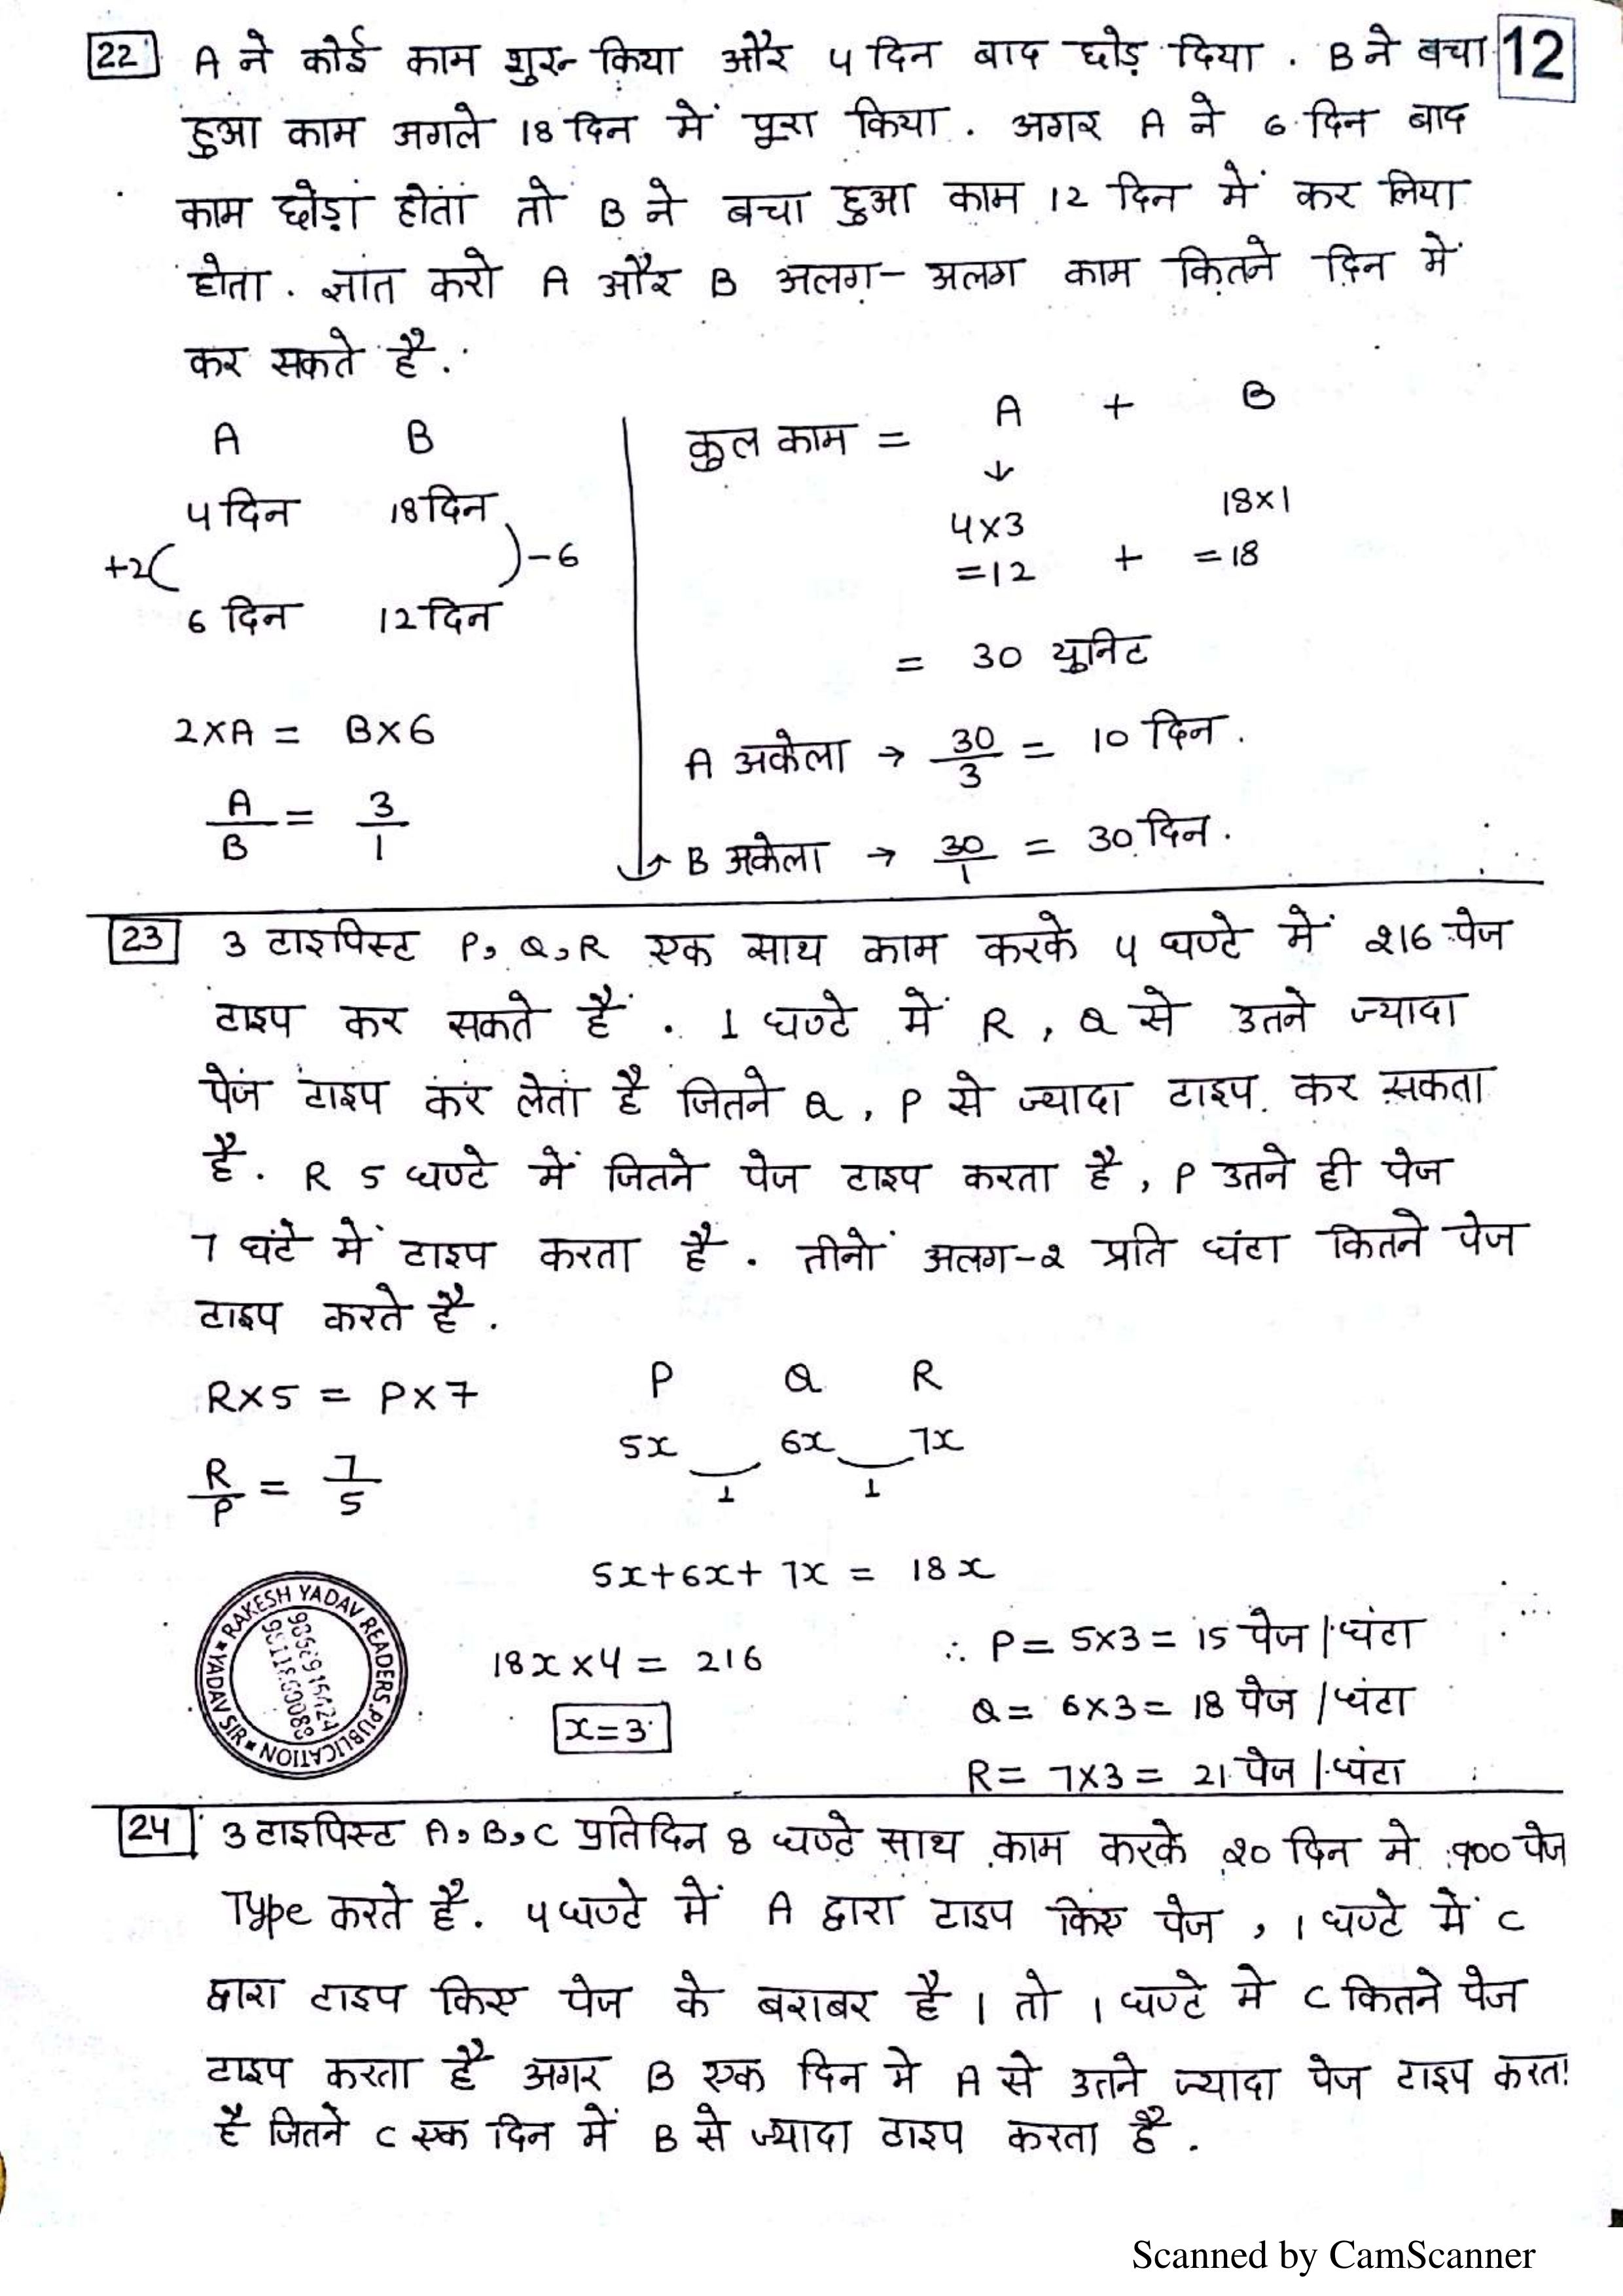 22 A ने कोई काम शुरू किया और 4 दिन बाद छोड़ दिया . B ने बचा 12
हुआ काम अगले 18 दिन में पूरा किया . अगर A ने 6 दिन बाद
काम छोड़ा होता तो B ने बचा हुआ काम 12 दिन में कर लिया
होता . ज्ञात करो A और B अलग-अलग काम कितने दिन में
कर सकते है .
A B
4 दिन 18 दिन
+2( )-6
6 दिन 12 दिन
2×A = B×6
A/B = 3/1
कुल काम = A + B
↓
4×3 18×1
=12 + =18
= 30 युनिट
A अकेला → 30/3 = 10 दिन .
B अकेला → 30/1 = 30 दिन .
23 3 टाइपिस्ट P, Q, R एक साथ काम करके 4 घण्टे में 216 पेज
टाइप कर सकते हैं . 1 घण्टे में R , Q से उतने ज्यादा
पेज टाइप कर लेता है जितने Q , P से ज्यादा टाइप कर सकता
है . R 5 घण्टे में जितने पेज टाइप करता है , P उतने ही पेज
7 घंटे में टाइप करता है . तीनों अलग-2 प्रति घंटा कितने पेज
टाइप करते है .
R×5 = P×7
R/P = 7/5
P Q R
5x 6x 7x
1 1
5x+6x+7x = 18x
18x×4 = 216
x=3
∴ P = 5×3 = 15 पेज / घंटा
Q = 6×3 = 18 पेज / घंटा
R = 7×3 = 21 पेज / घंटा
RAKESH YADAV READERS PUBLICATION
YADAV SIR
24 3 टाइपिस्ट A, B, C प्रतिदिन 8 घण्टे साथ काम करके 20 दिन मे 900 पेज
Type करते है . 4 घण्टे में A द्वारा टाइप किए पेज , 1 घण्टे में C
द्वारा टाइप किए पेज के बराबर है । तो 1 घण्टे मे C कितने पेज
टाइप करता है अगर B एक दिन मे A से उतने ज्यादा पेज टाइप करता
है जितने C एक दिन में B से ज्यादा टाइप करता है .
Scanned by CamScanner